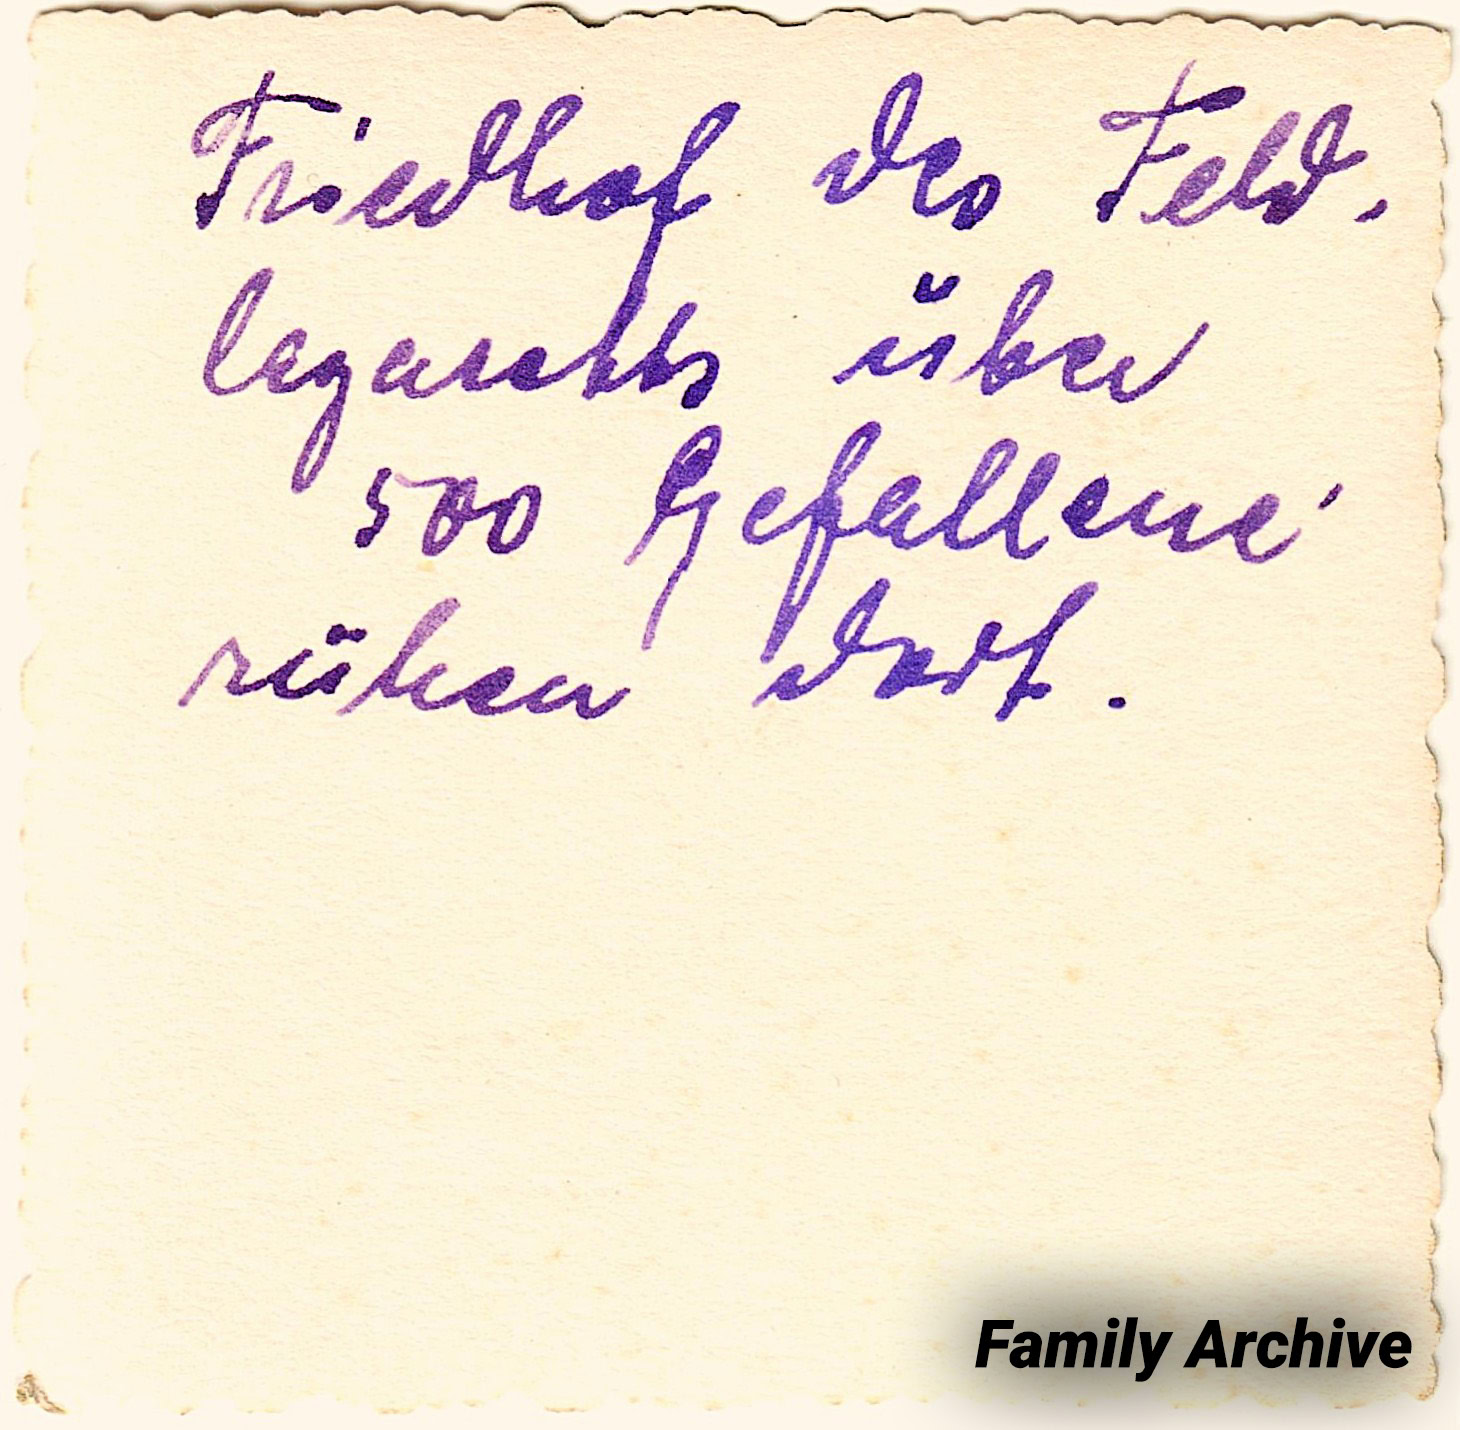 Friedhof des Feld-
lazaretts über
500 Gefallene
rühen dort.
Family Archive